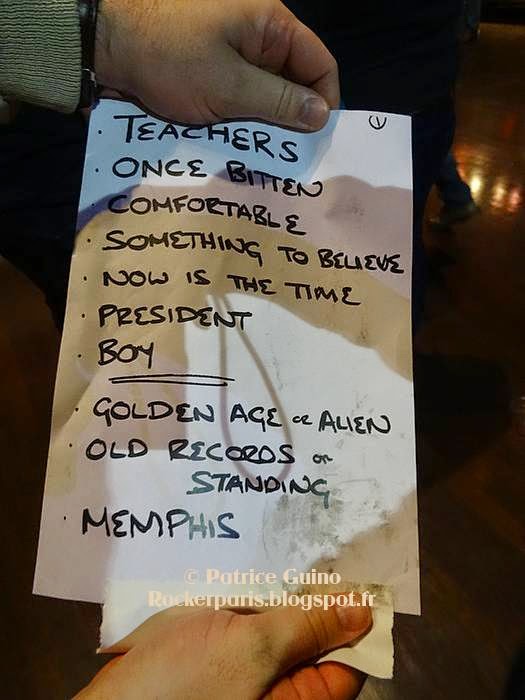 · TEACHERS
· ONCE BITTEN
· COMFORTABLE
· SOMETHING TO BELIEVE
· NOW IS THE TIME
· PRESIDENT
· BOY
· GOLDEN AGE or ALIEN
· OLD RECORDS or
STANDING
· MEMPHIS
© Patrice Guino
Rockerparis.blogspot.fr